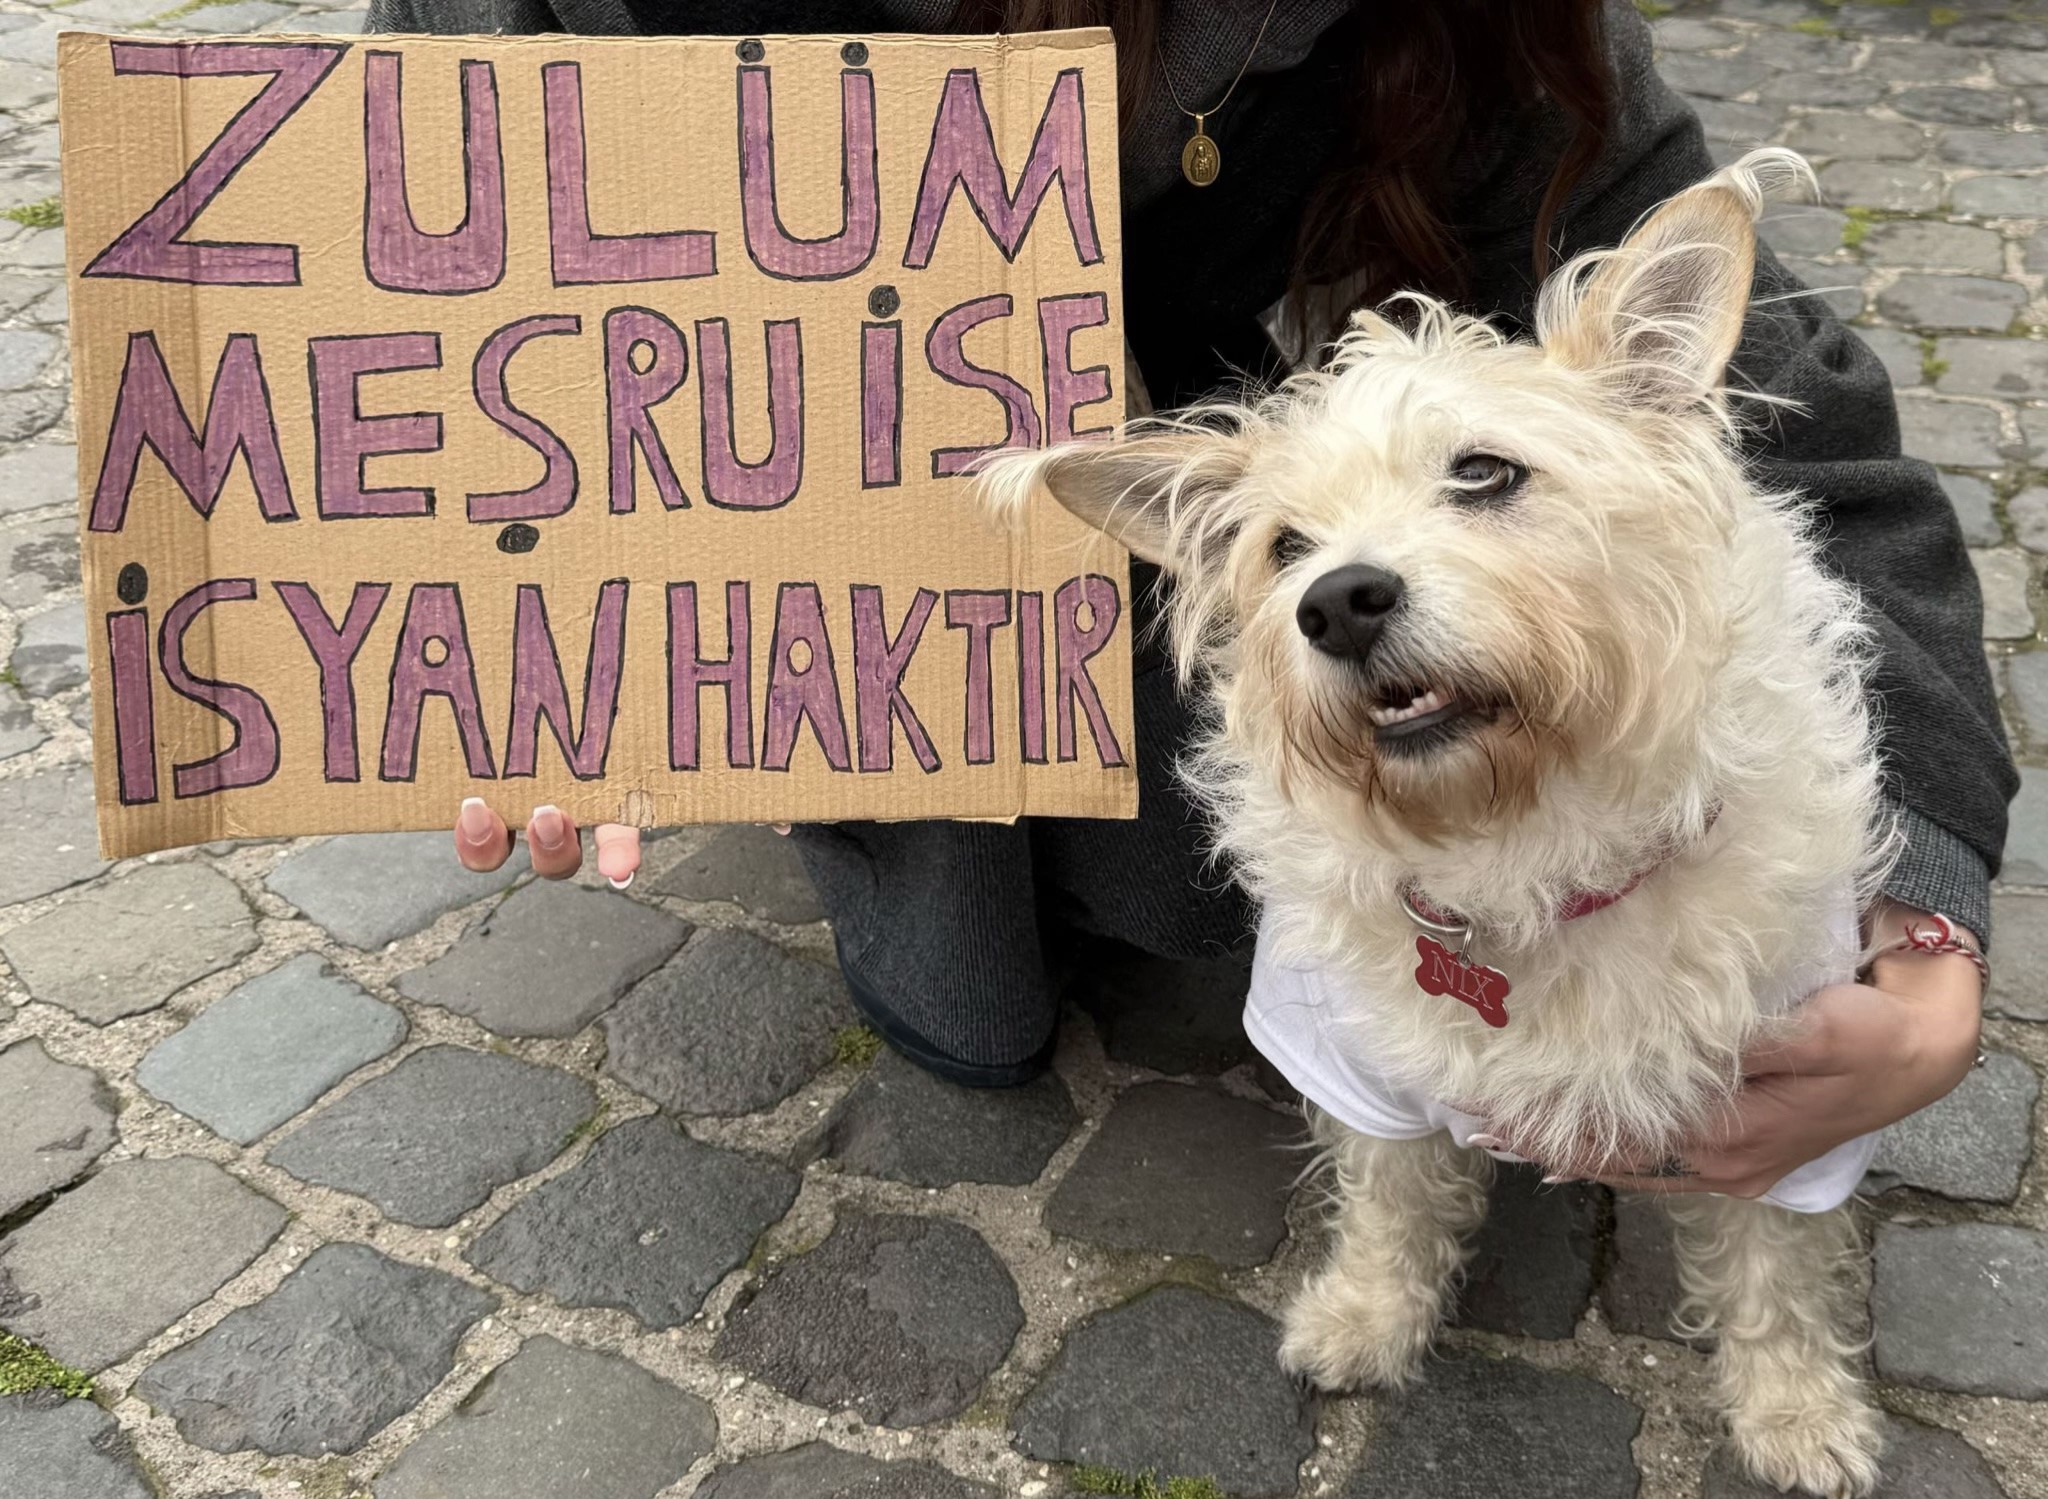 ZULÜM
MEŞRU İSE
İSYAN HAKTIR
NIX